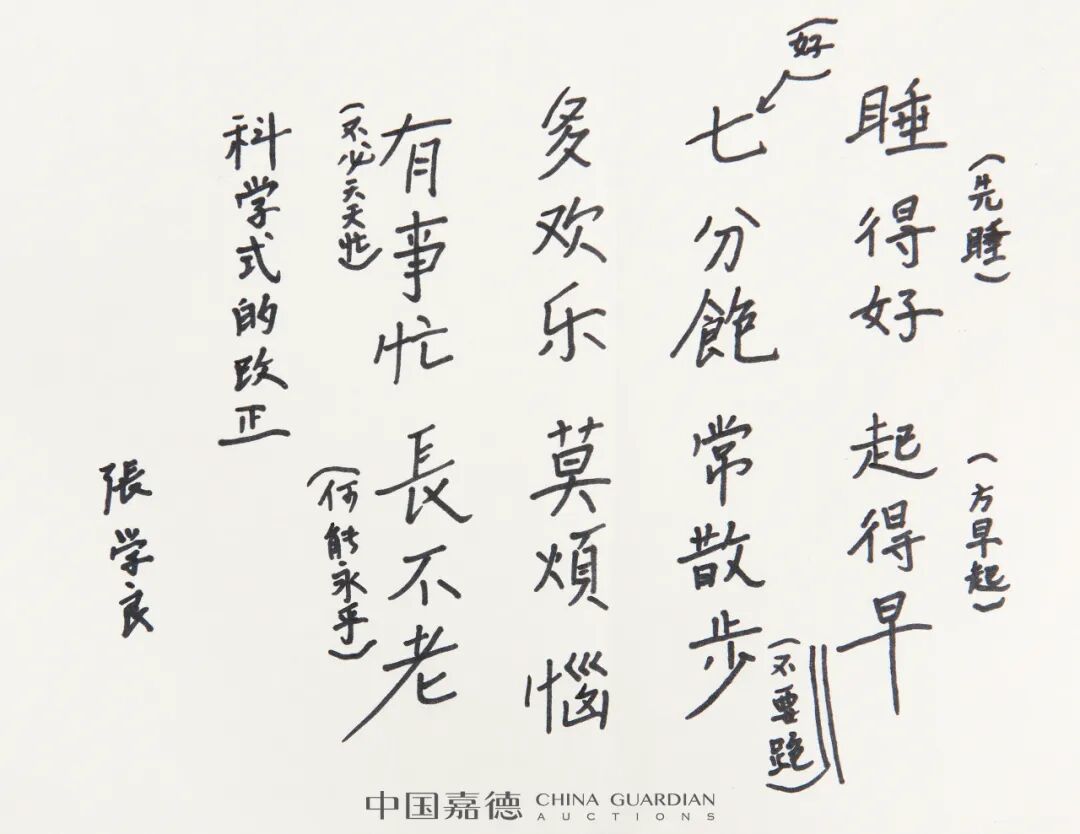 睡得好 起得早
(先睡)
(方早起)
七分飽 常散步
(好)
(不要跑)
多欢乐 莫煩惱
有事忙 長不老
(不必天天忙)
(何能永乎)
科学式的改正
張学良
中国嘉德 CHINA GUARDIAN
AUCTIONS